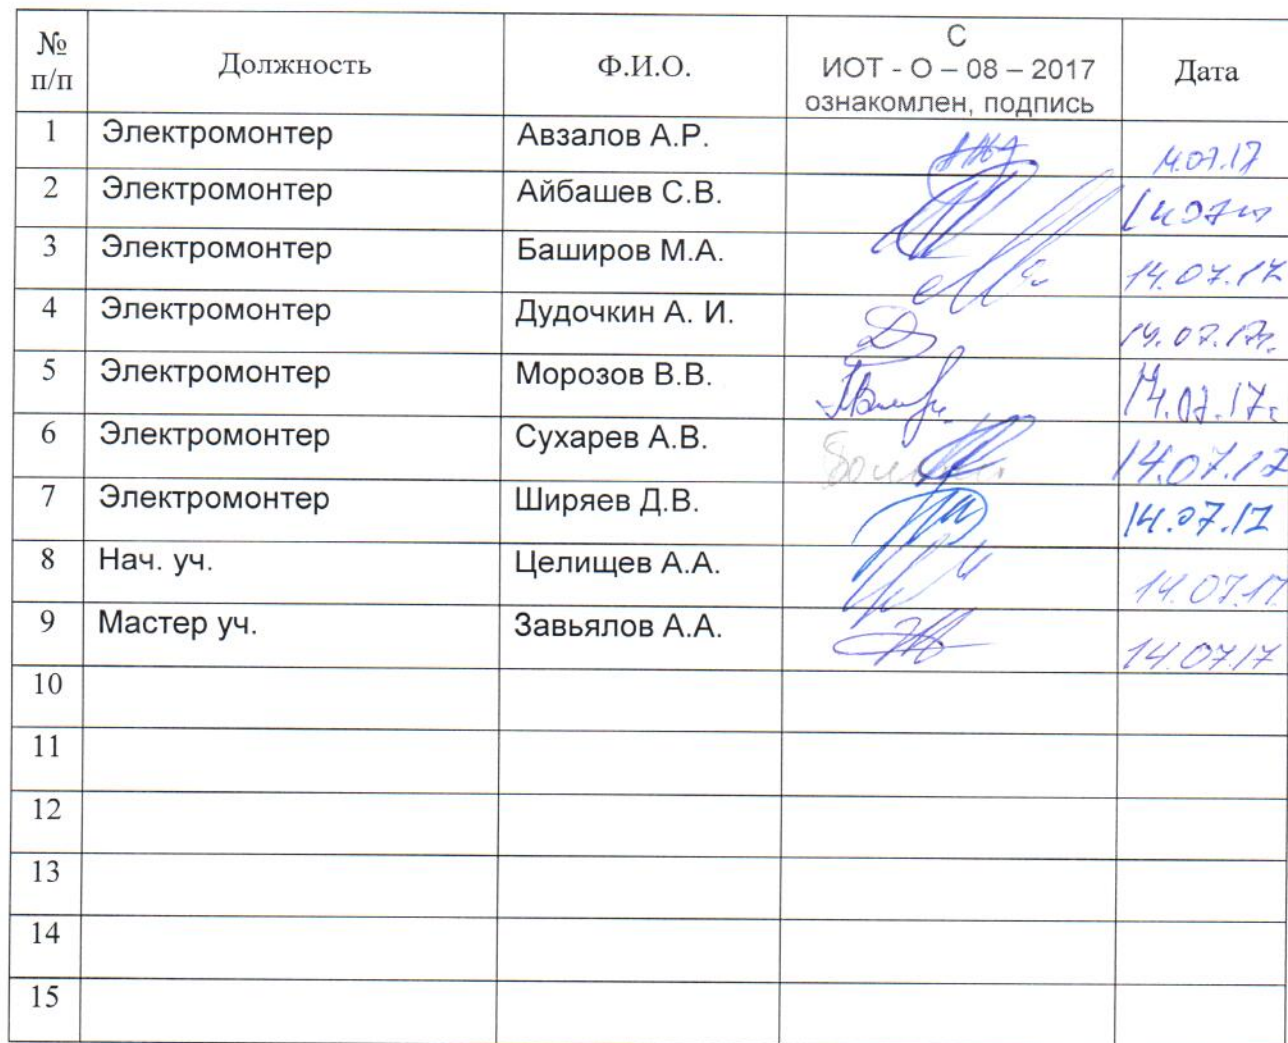 № п/п Должность Ф.И.О. С ИОТ - О – 08 – 2017 ознакомлен, подпись Дата
1 Электромонтер Авзалов А.Р. 14.07.17
2 Электромонтер Айбашев С.В.
3 Электромонтер Баширов М.А. 14.07.17
4 Электромонтер Дудочкин А. И. 14.07.17г.
5 Электромонтер Морозов В.В. 14.07.17г
6 Электромонтер Сухарев А.В. 14.07.17
7 Электромонтер Ширяев Д.В. 14.07.17
8 Нач. уч. Целищев А.А. 14.07.17
9 Мастер уч. Завьялов А.А. 14.07.17
10
11
12
13
14
15